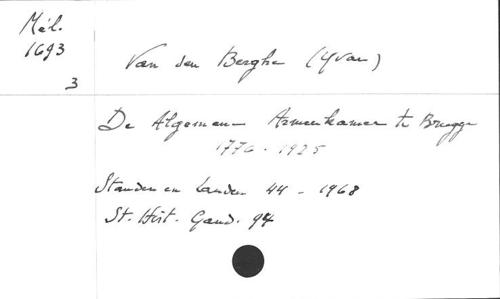 Mél.
1693
3
Van den Berghe (Yvan)
De Algemene Armenkamer te Brugge
1776 - 1925
Standen en Landen 44 - 1968
St. Hist. Gand. 94